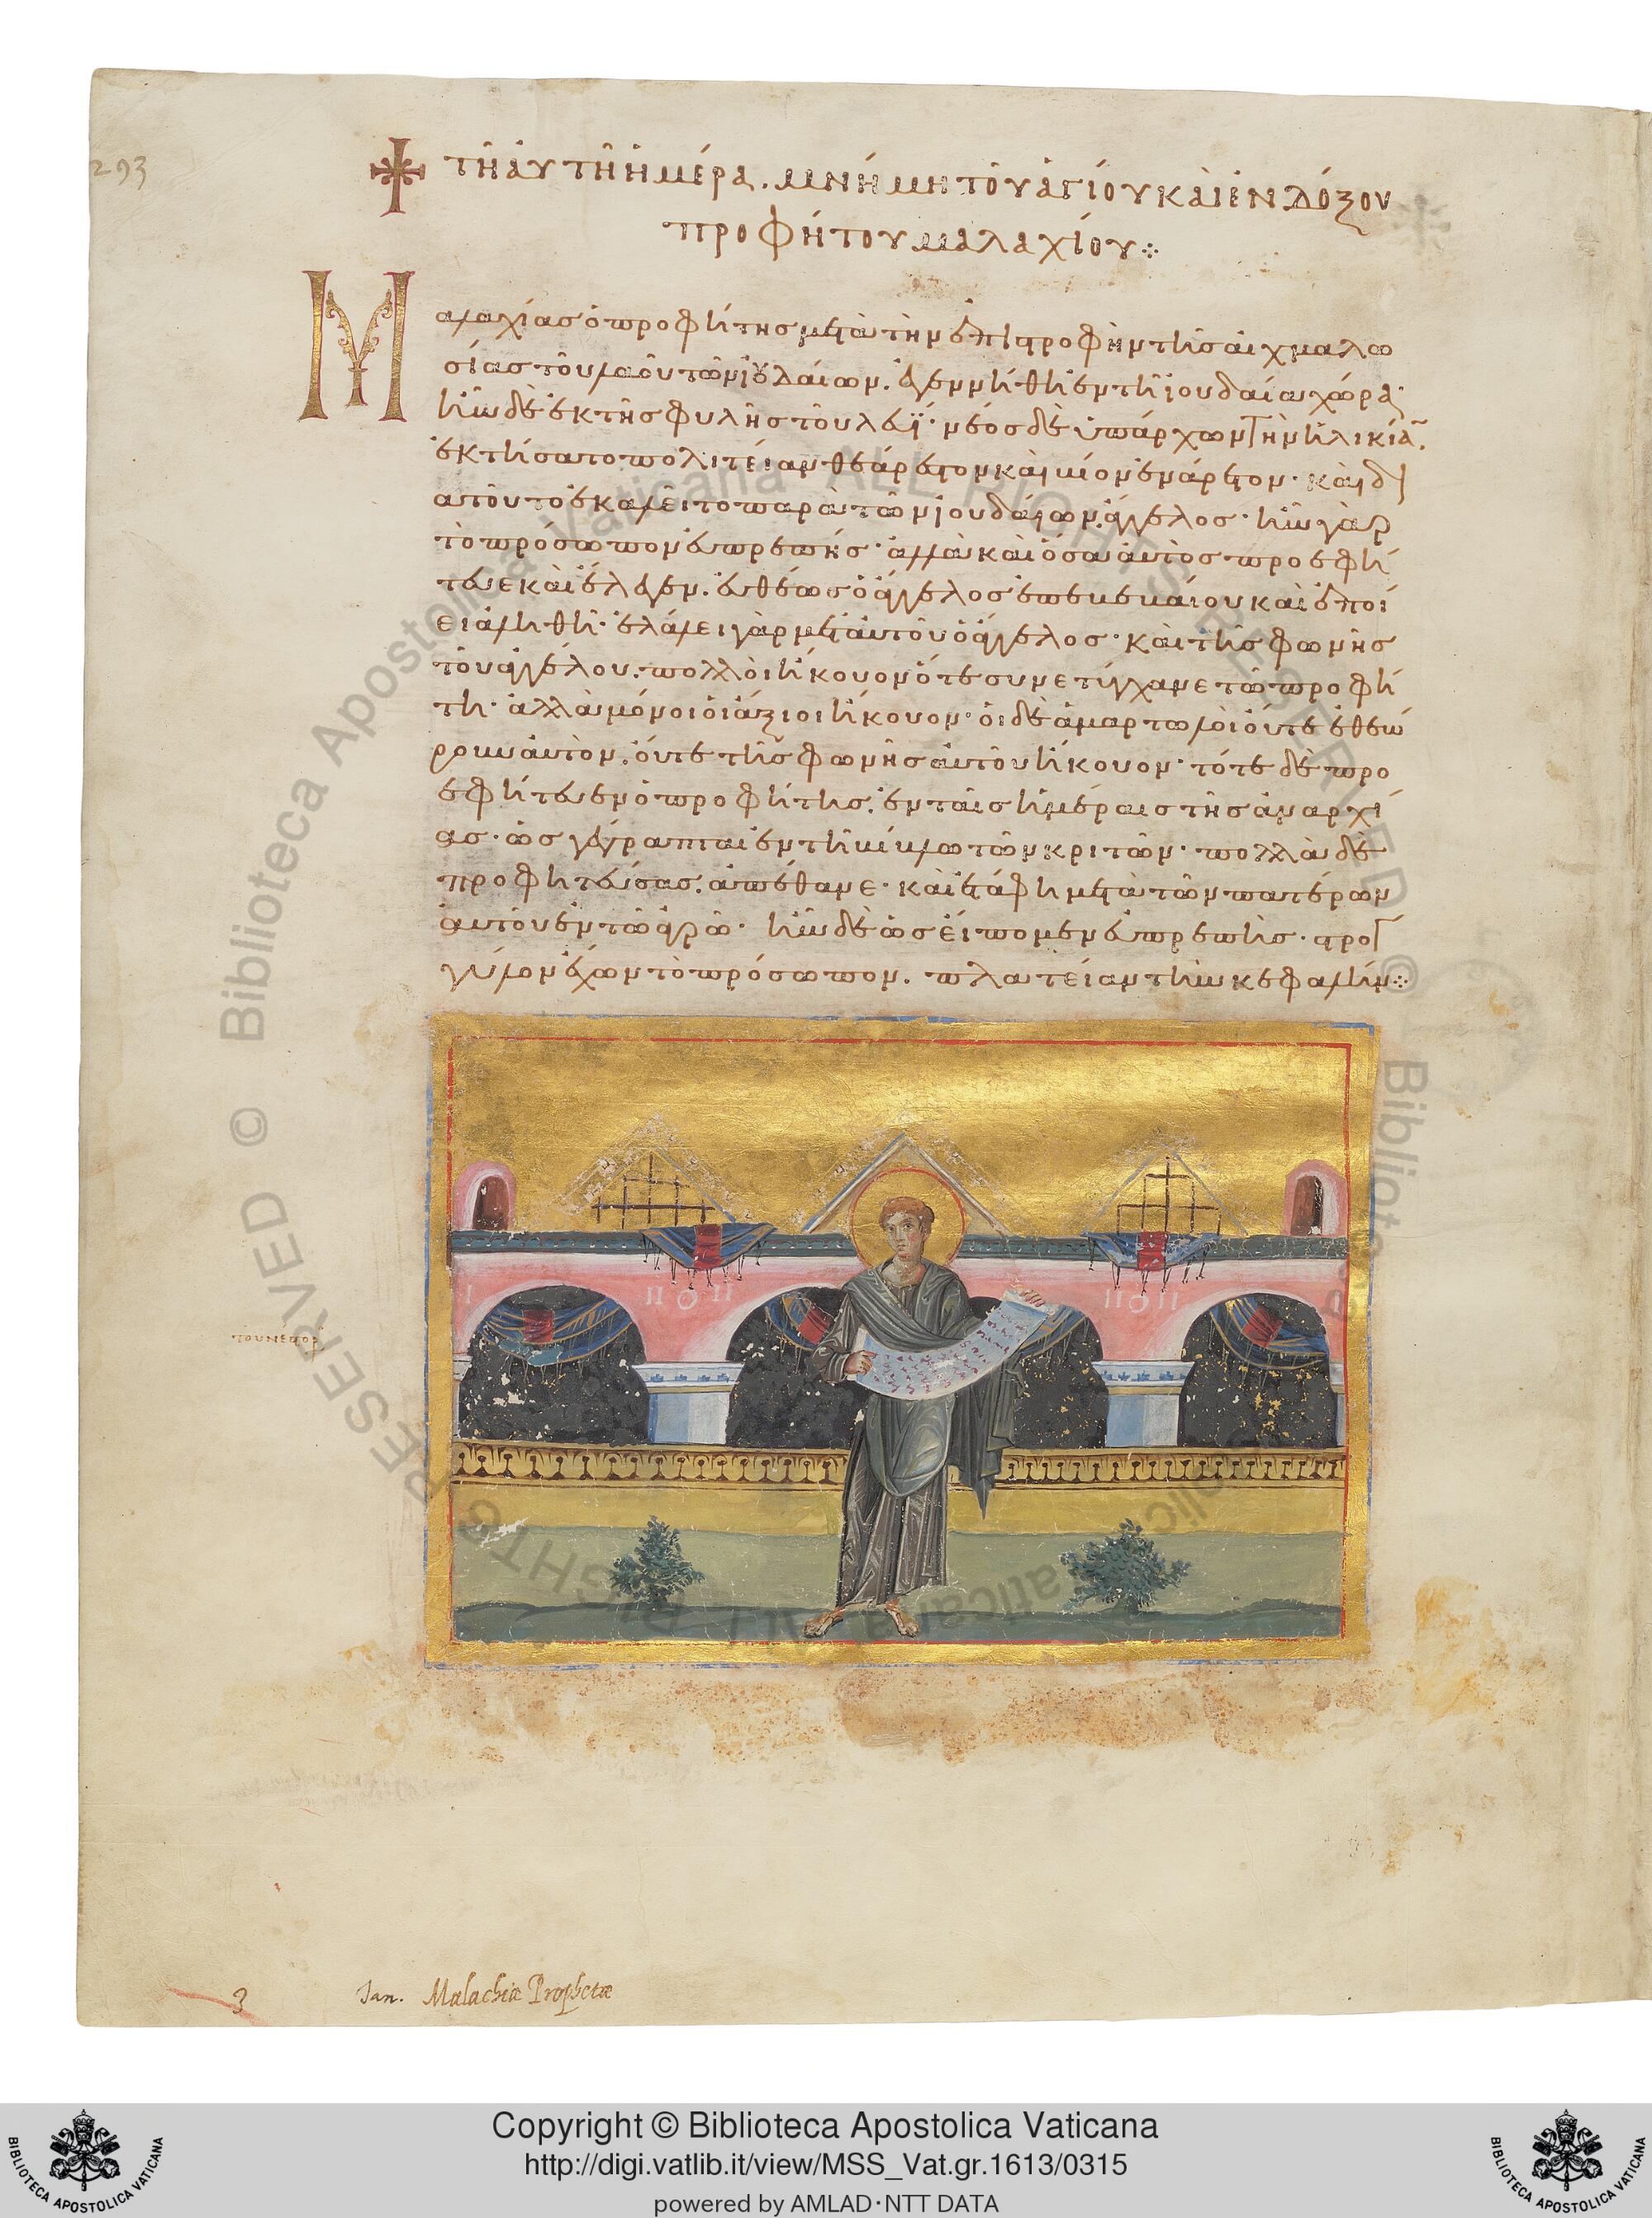 293
ΤΗ ΑΥΤΗ ΗΜΕΡΑ. ΜΝΗΜΗ ΤΟΥ ΑΓΙΟΥ ΚΑΙ ΕΝΔΟΞΟΥ
ΠΡΟΦΗΤΟΥ ΜΑΛΑΧΙΟΥ
Μαλαχίας ὁ προφήτης μετὰ τὴν ἐπιστροφὴν τῆς αἰχμαλω
σίας τοῦ λαοῦ τῶν ἰουδαίων. ἐγεννήθη ἐν τῆ ἰουδαία χώρα·
ἦν δὲ ἐκ τῆς φυλῆς τοῦ λευΐ· νέος δὲ ὑπάρχων τὴν ἡλικίαν.
ἐκτήσατο πολιτείαν θεάρεστον καὶ βίον ἐνάρετον· καὶ δι
ατοῦτο ἐκαλεῖτο παρὰ τῶν ἰουδαίων ἄγγελος· ἦν γὰρ
τὸ πρόσωπον εὐπρεπής· ἀλλὰ καὶ ὅσα αὐτὸς προεφή
τευε καὶ ἔλεγεν. εὐθέως ὁ ἄγγελος ἐπεβεβαίου καὶ ἐποί
ει ἀληθῆ· ἐλάλει γὰρ μετ αὐτοῦ ὁ ἄγγελος· καὶ τῆς φωνῆς
τοῦ ἀγγέλου. πολλοὶ ἤκουον ὅτε συνετύγχανε τῶ προφή
τη· ἀλλὰ μόνοι οἱ ἄξιοι ἤκουον· οἱ δὲ ἁμαρτωλοὶ οὔτε ἐθεώ
ρουν αὐτὸν. οὔτε τῆς φωνῆς αὐτοῦ ἤκουον· τότε δὲ προ
εφήτευεν ὁ προφήτης. ἐν ταῖς ἡμέραις τῆς ἀναρχί
ας· ὡς γέγραπται ἐν τῆ βίβλω τῶν κριτῶν· πολλὰ δὲ
προφητεύσας. ἀπέθανε· καὶ ἐτάφη μετὰ τῶν πατέρων
αὐτοῦ ἐν τῶ ἀγρῶ· ἦν δὲ ὡς εἴπομεν εὐπρεπὴς· στρογ
γύλον ἔχων τὸ πρόσωπον. πλατεῖαν τὴν κεφαλήν
3 Jan. Malachiæ Prophetæ
© Biblioteca Apostolica Vaticana ALL RIGHTS RESERVED
BIBLIOTECA APOSTOLICA VATICANA
Copyright © Biblioteca Apostolica Vaticana
http://digi.vatlib.it/view/MSS_Vat.gr.1613/0315
powered by AMLAD·NTT DATA
BIBLIOTECA APOSTOLICA VATICANA